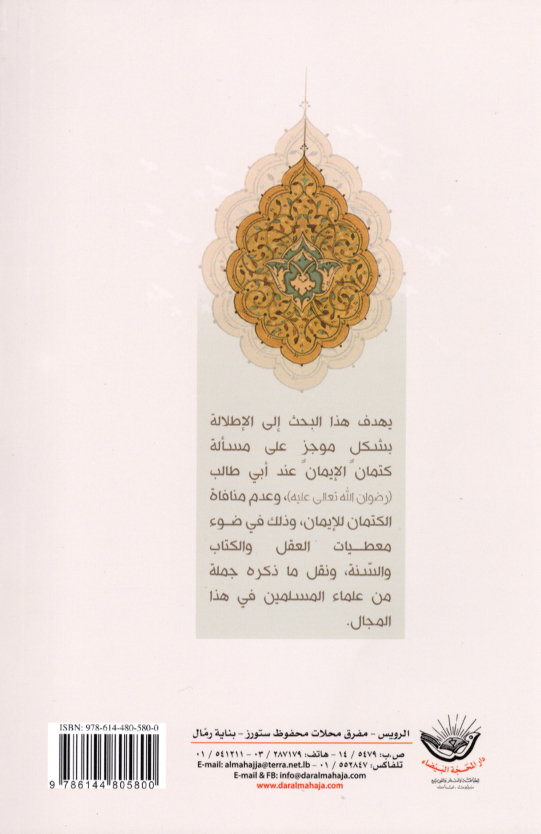 يهدف هذا البحث إلى الإطلالة
بشكل موجز على مسألة
كتمان "الإيمان" عند أبي طالب
(رضوان الله تعالى عليه)، وعدم منافاة
الكتمان للإيمان، وذلك في ضوء
معطيات العقل والكتاب
والسّنة، ونقل ما ذكره جملة
من علماء المسلمين في هذا
المجال.
ISBN: 978-614-480-580-0
9 786144 805800
الرويس - مفرق محلات محفوظ ستورز - بناية رمّال
ص.ب: ٥٤٧٩ / ١٤ - هاتف: ٢٨٧١٧٩ / ٠٣ - ٥٤١٢١١ / ٠١
تلفاكس: ٥٥٢٨٤٧ / ٠١ - E-mail: almahajja@terra.net.lb
E-mail & FB: info@daralmahaja.com
www.daralmahaja.com
دار المحجة البيضاء